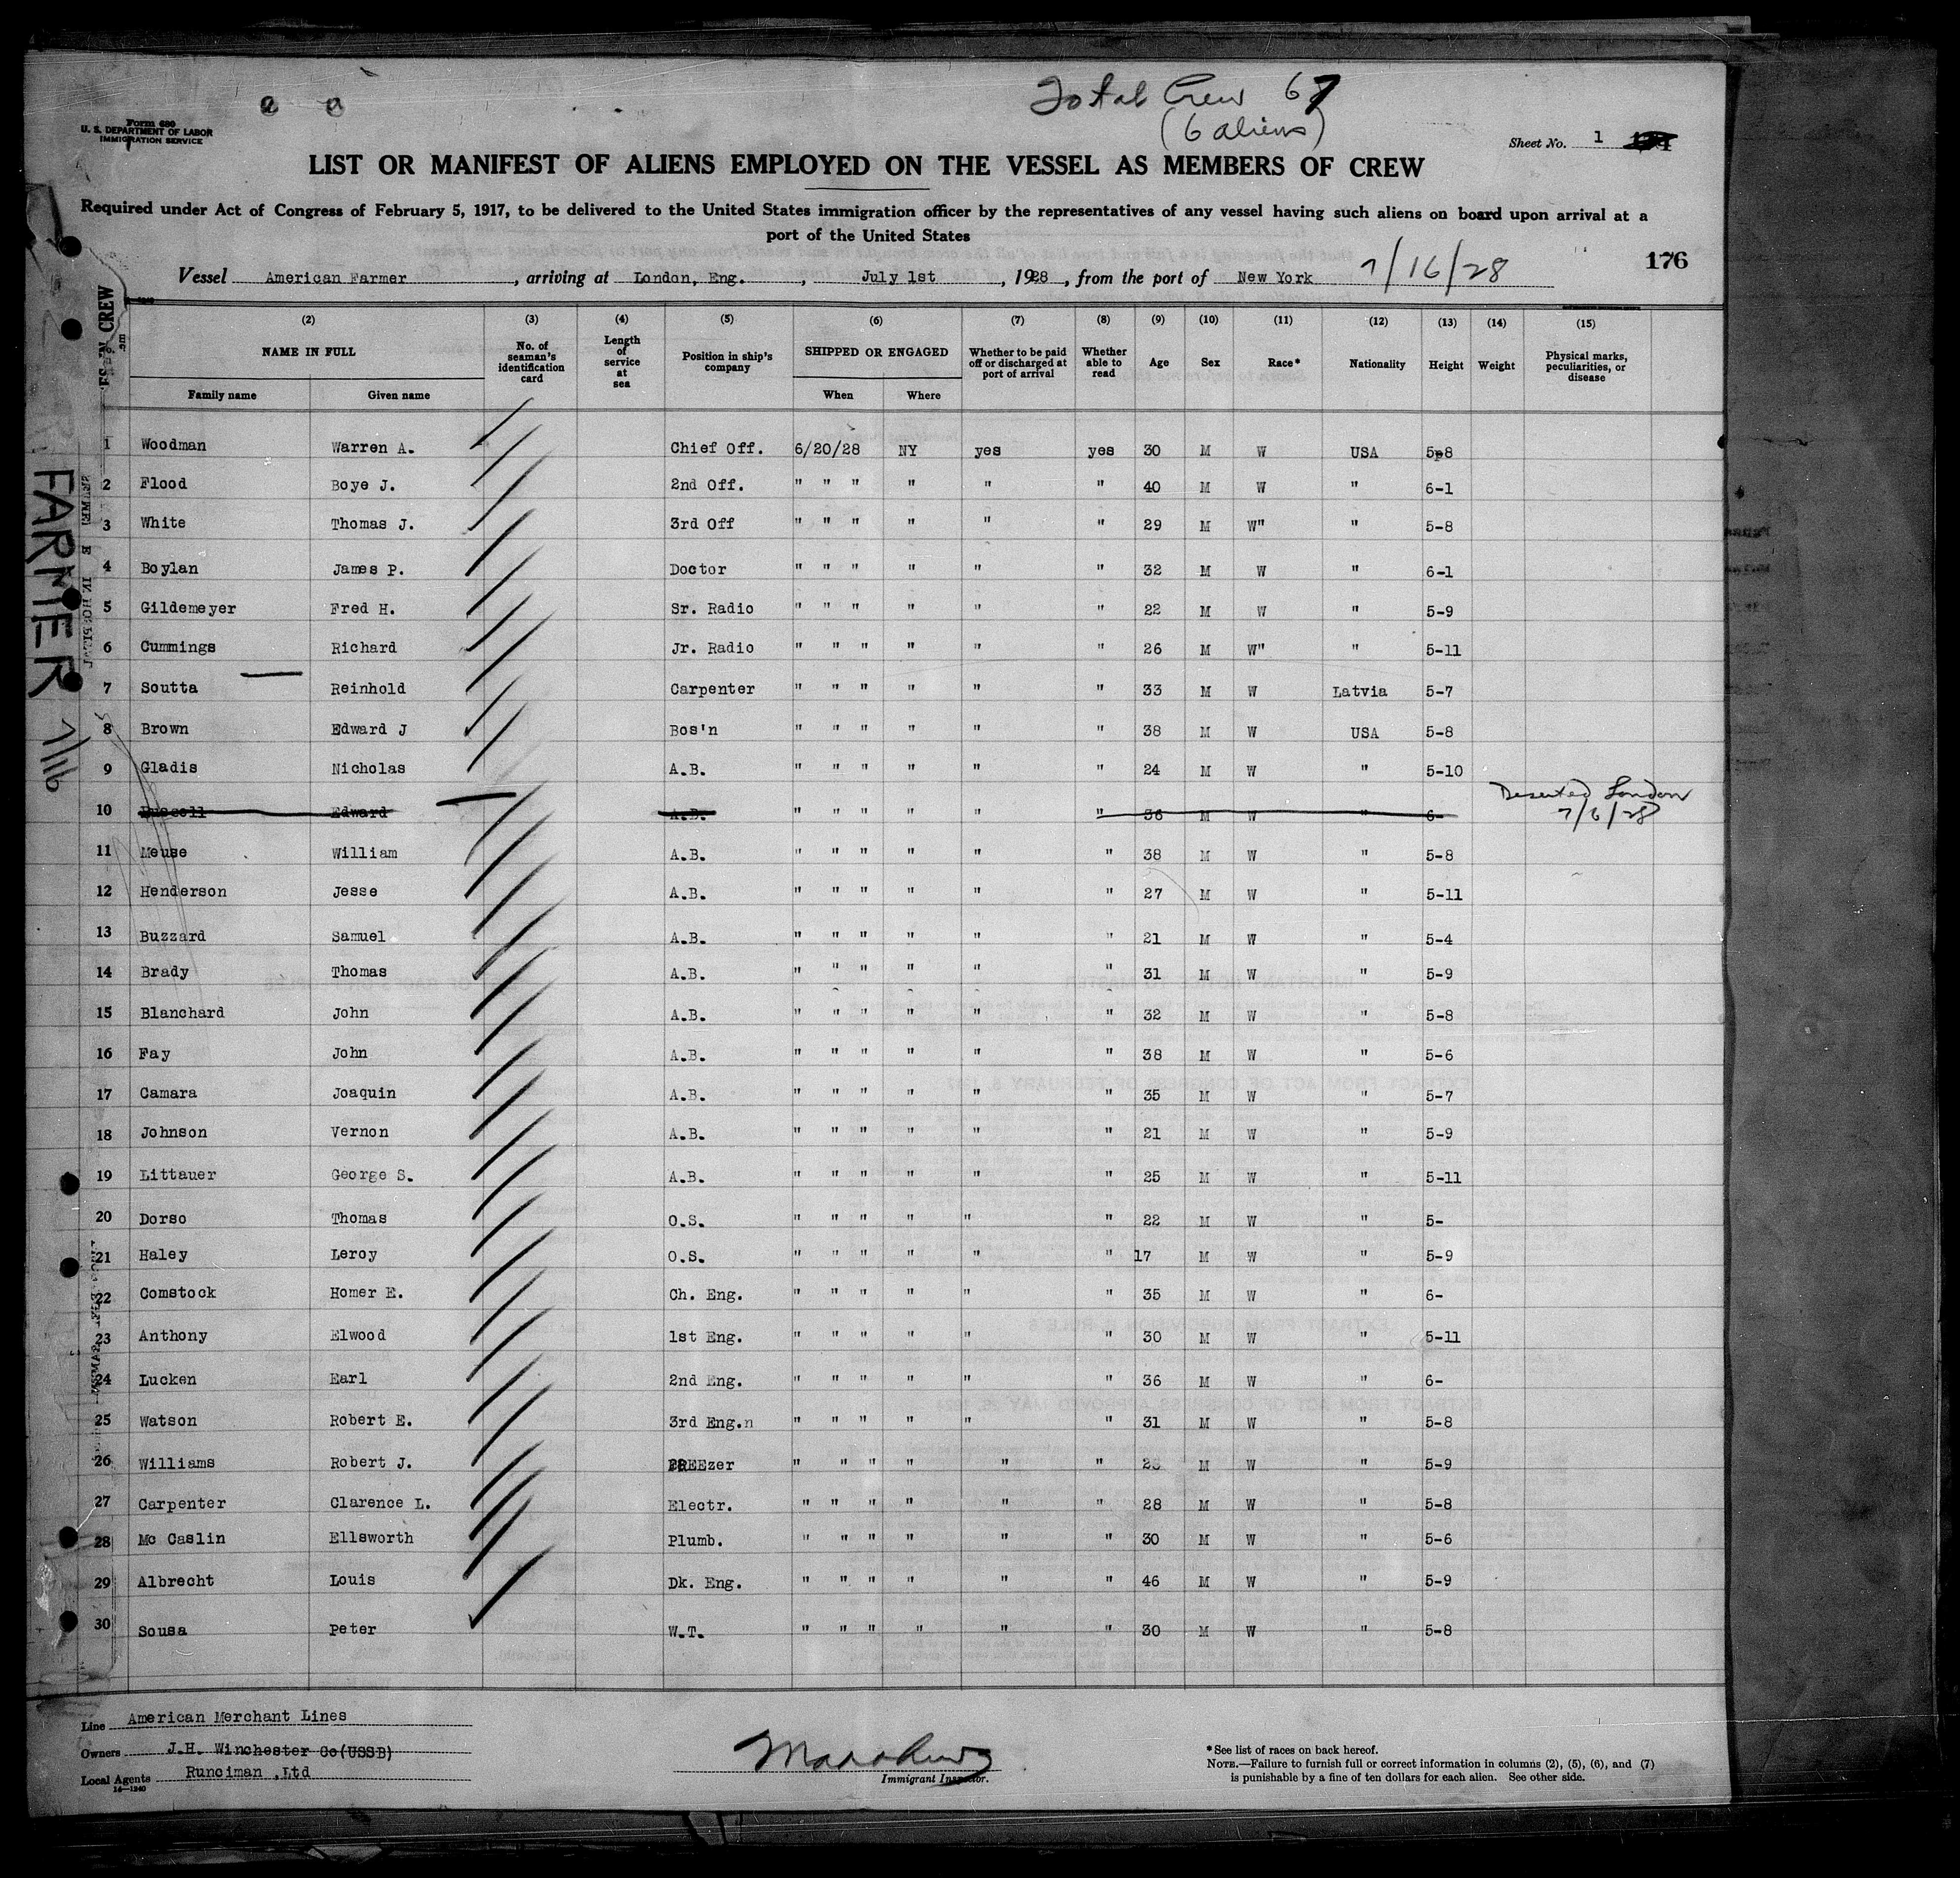 Total Crew 67
(6 aliens)
Form 680
U. S. DEPARTMENT OF LABOR
IMMIGRATION SERVICE
Sheet No. 1
LIST OR MANIFEST OF ALIENS EMPLOYED ON THE VESSEL AS MEMBERS OF CREW
Required under Act of Congress of February 5, 1917, to be delivered to the United States immigration officer by the representatives of any vessel having such aliens on board upon arrival at a
port of the United States
176
Vessel American Farmer, arriving at London, Eng., July 1st, 1928, from the port of New York 7/16/28
(2) (3) (4) (5) (6) (7) (8) (9) (10) (11) (12) (13) (14) (15)
NAME IN FULL No. of seaman's identification card Length of service at sea Position in ship's company SHIPPED OR ENGAGED Whether to be paid off or discharged at port of arrival Whether able to read Age Sex Race* Nationality Height Weight Physical marks, peculiarities, or disease
Family name Given name When Where
1 Woodman Warren A. Chief Off. 6/20/28 NY yes yes 30 M W USA 5-8
2 Flood Boye J. 2nd Off. " " " " " " 40 M W " 6-1
3 White Thomas J. 3rd Off " " " " " " 29 M W" " 5-8
4 Boylan James P. Doctor " " " " " " 32 M W " 6-1
5 Gildemeyer Fred H. Sr. Radio " " " " " " 22 M W " 5-9
6 Cummings Richard Jr. Radio " " " " " " 26 M W" " 5-11
7 Soutta Reinhold Carpenter " " " " " " 33 M W Latvia 5-7
8 Brown Edward J Bos'n " " " " " " 38 M W USA 5-8
9 Gladis Nicholas A.B. " " " " " " 24 M W " 5-10
10 Edward A.B. " " " " " " 36 M W " 6- Deserted London 7/6/28
11 Meuse William A.B. " " " " " " 38 M W " 5-8
12 Henderson Jesse A.B. " " " " " " 27 M W " 5-11
13 Buzzard Samuel A.B. " " " " " " 21 M W " 5-4
14 Brady Thomas A.B. " " " " " " 31 M W " 5-9
15 Blanchard John A.B. " " " " " " 32 M W " 5-8
16 Fay John A.B. " " " " " " 38 M W " 5-6
17 Camara Joaquin A.B. " " " " " " 35 M W " 5-7
18 Johnson Vernon A.B. " " " " " " 21 M W " 5-9
19 Littauer George S. A.B. " " " " " " 25 M W " 5-11
20 Dorso Thomas O.S. " " " " " " 22 M W " 5-
21 Haley Leroy O.S. " " " " " " 17 M W " 5-9
22 Comstock Homer E. Ch. Eng. " " " " " " 35 M W " 6-
23 Anthony Elwood 1st Eng. " " " " " " 30 M W " 5-11
24 Lucken Earl 2nd Eng. " " " " " " 36 M W " 6-
25 Watson Robert E. 3rd Eng.n " " " " " " 31 M W " 5-8
26 Williams Robert J. FREEzer " " " " " " M W " 5-9
27 Carpenter Clarence L. Electr. " " " " " " 28 M W " 5-8
28 Mc Caslin Ellsworth Plumb. " " " " " " 30 M W " 5-6
29 Albrecht Louis Dk. Eng. " " " " " " 46 M W " 5-9
30 Sousa Peter W.T. " " " " " " 30 M W " 5-8
FARMER 7/16
Line American Merchant Lines
Owners J.H. Winchester Co(USSB)
Local Agents Runciman ,Ltd
14—1240
Immigrant Inspector.
*See list of races on back hereof.
NOTE.—Failure to furnish full or correct information in columns (2), (5), (6), and (7)
is punishable by a fine of ten dollars for each alien. See other side.